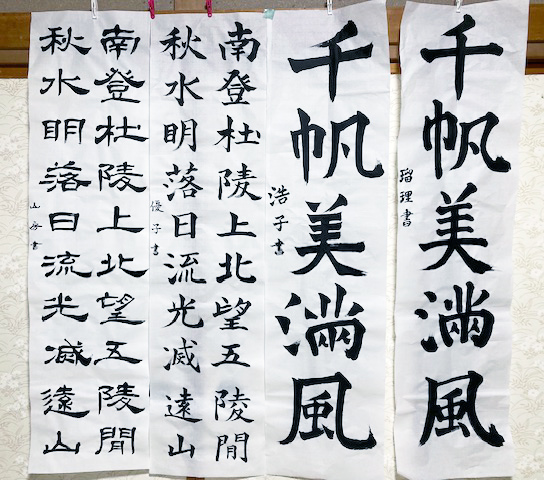 千帆美滿風
瑠理書
千帆美滿風
浩子書
南登杜陵上北望五陵間
秋水明落日流光滅遠山
優子書
南登杜陵上北望五陵間
秋水明落日流光滅遠山